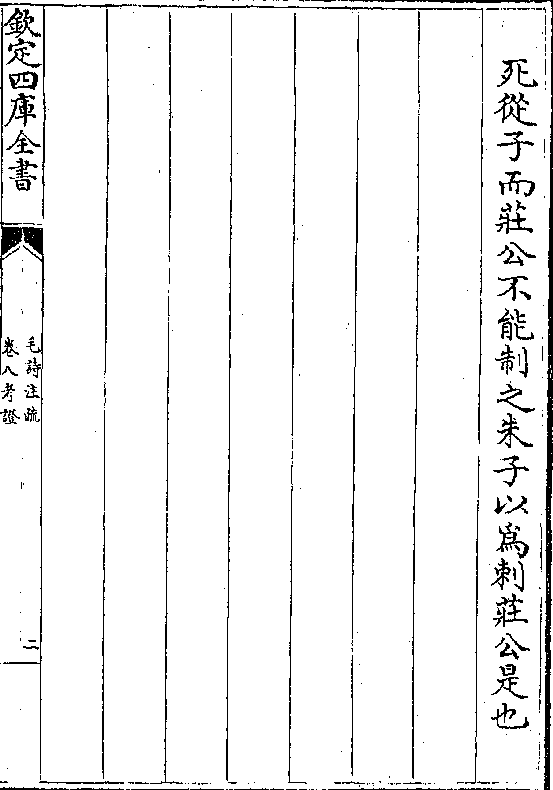 死從子而莊公不能制之朱子以爲刺莊公是也
欽定四庫全書
毛詩注疏
卷八考證
二